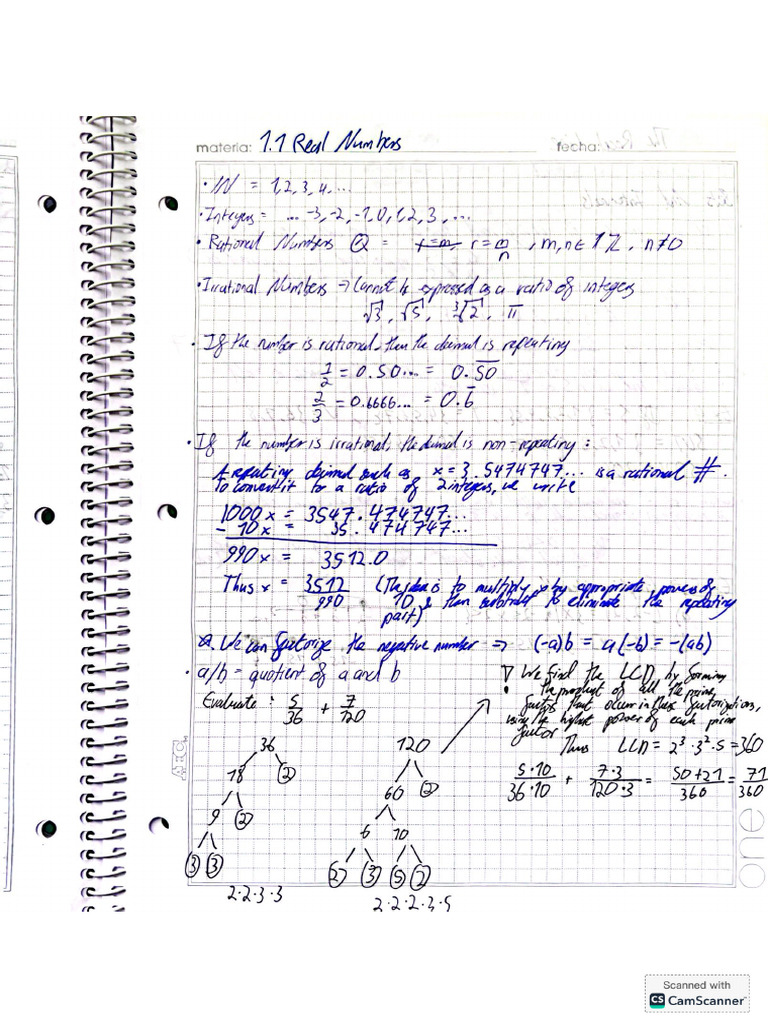 materia: 1.1 Real Numbers fecha:
· IN = 1,2,3,4,...
· Integers = ... -3,-2,-1,0,1,2,3,...
· Rational Numbers Q = r=m r=m/n , m,n ∈ Z, n≠0
· Irrational Numbers → Cannot be expressed as a ratio of integers
√3, √5, ³√2, π
· If the number is rational, then the decimal is repeating
1/2 = 0.50... = 0.5͞0
2/3 = 0.6666... = 0.6̄
· If the number is irrational, the decimal is non-repeating:
A repeating decimal such as x=3.5474747... is a rational #.
To convert it to a ratio of 2 integers, we write
1000x = 3547.474747...
- 10x = 35.474747...
990x = 3512.0
Thus x = 3512/990 (The idea is to multiply x by appropriate powers of
10 & then subtract to eliminate the repeating
part)
We can factorize the negative number → (-a)b = a(-b) = -(ab)
· a/b = quotient of a and b
Evaluate: 5/36 + 7/120
We find the LCD by forming
the product of all the prime
factors that occur in these factorizations,
using the highest power of each prime
factor
Thus LCD = 2³·3²·5 = 360
5·10/36·10 + 7·3/120·3 = 50+21/360 = 71/360
36
18 2
9 2
3 3
2·2·3·3
120
60 2
6 10
2 3 5 2
2·2·2·3·5
one
Scanned with
CS CamScanner